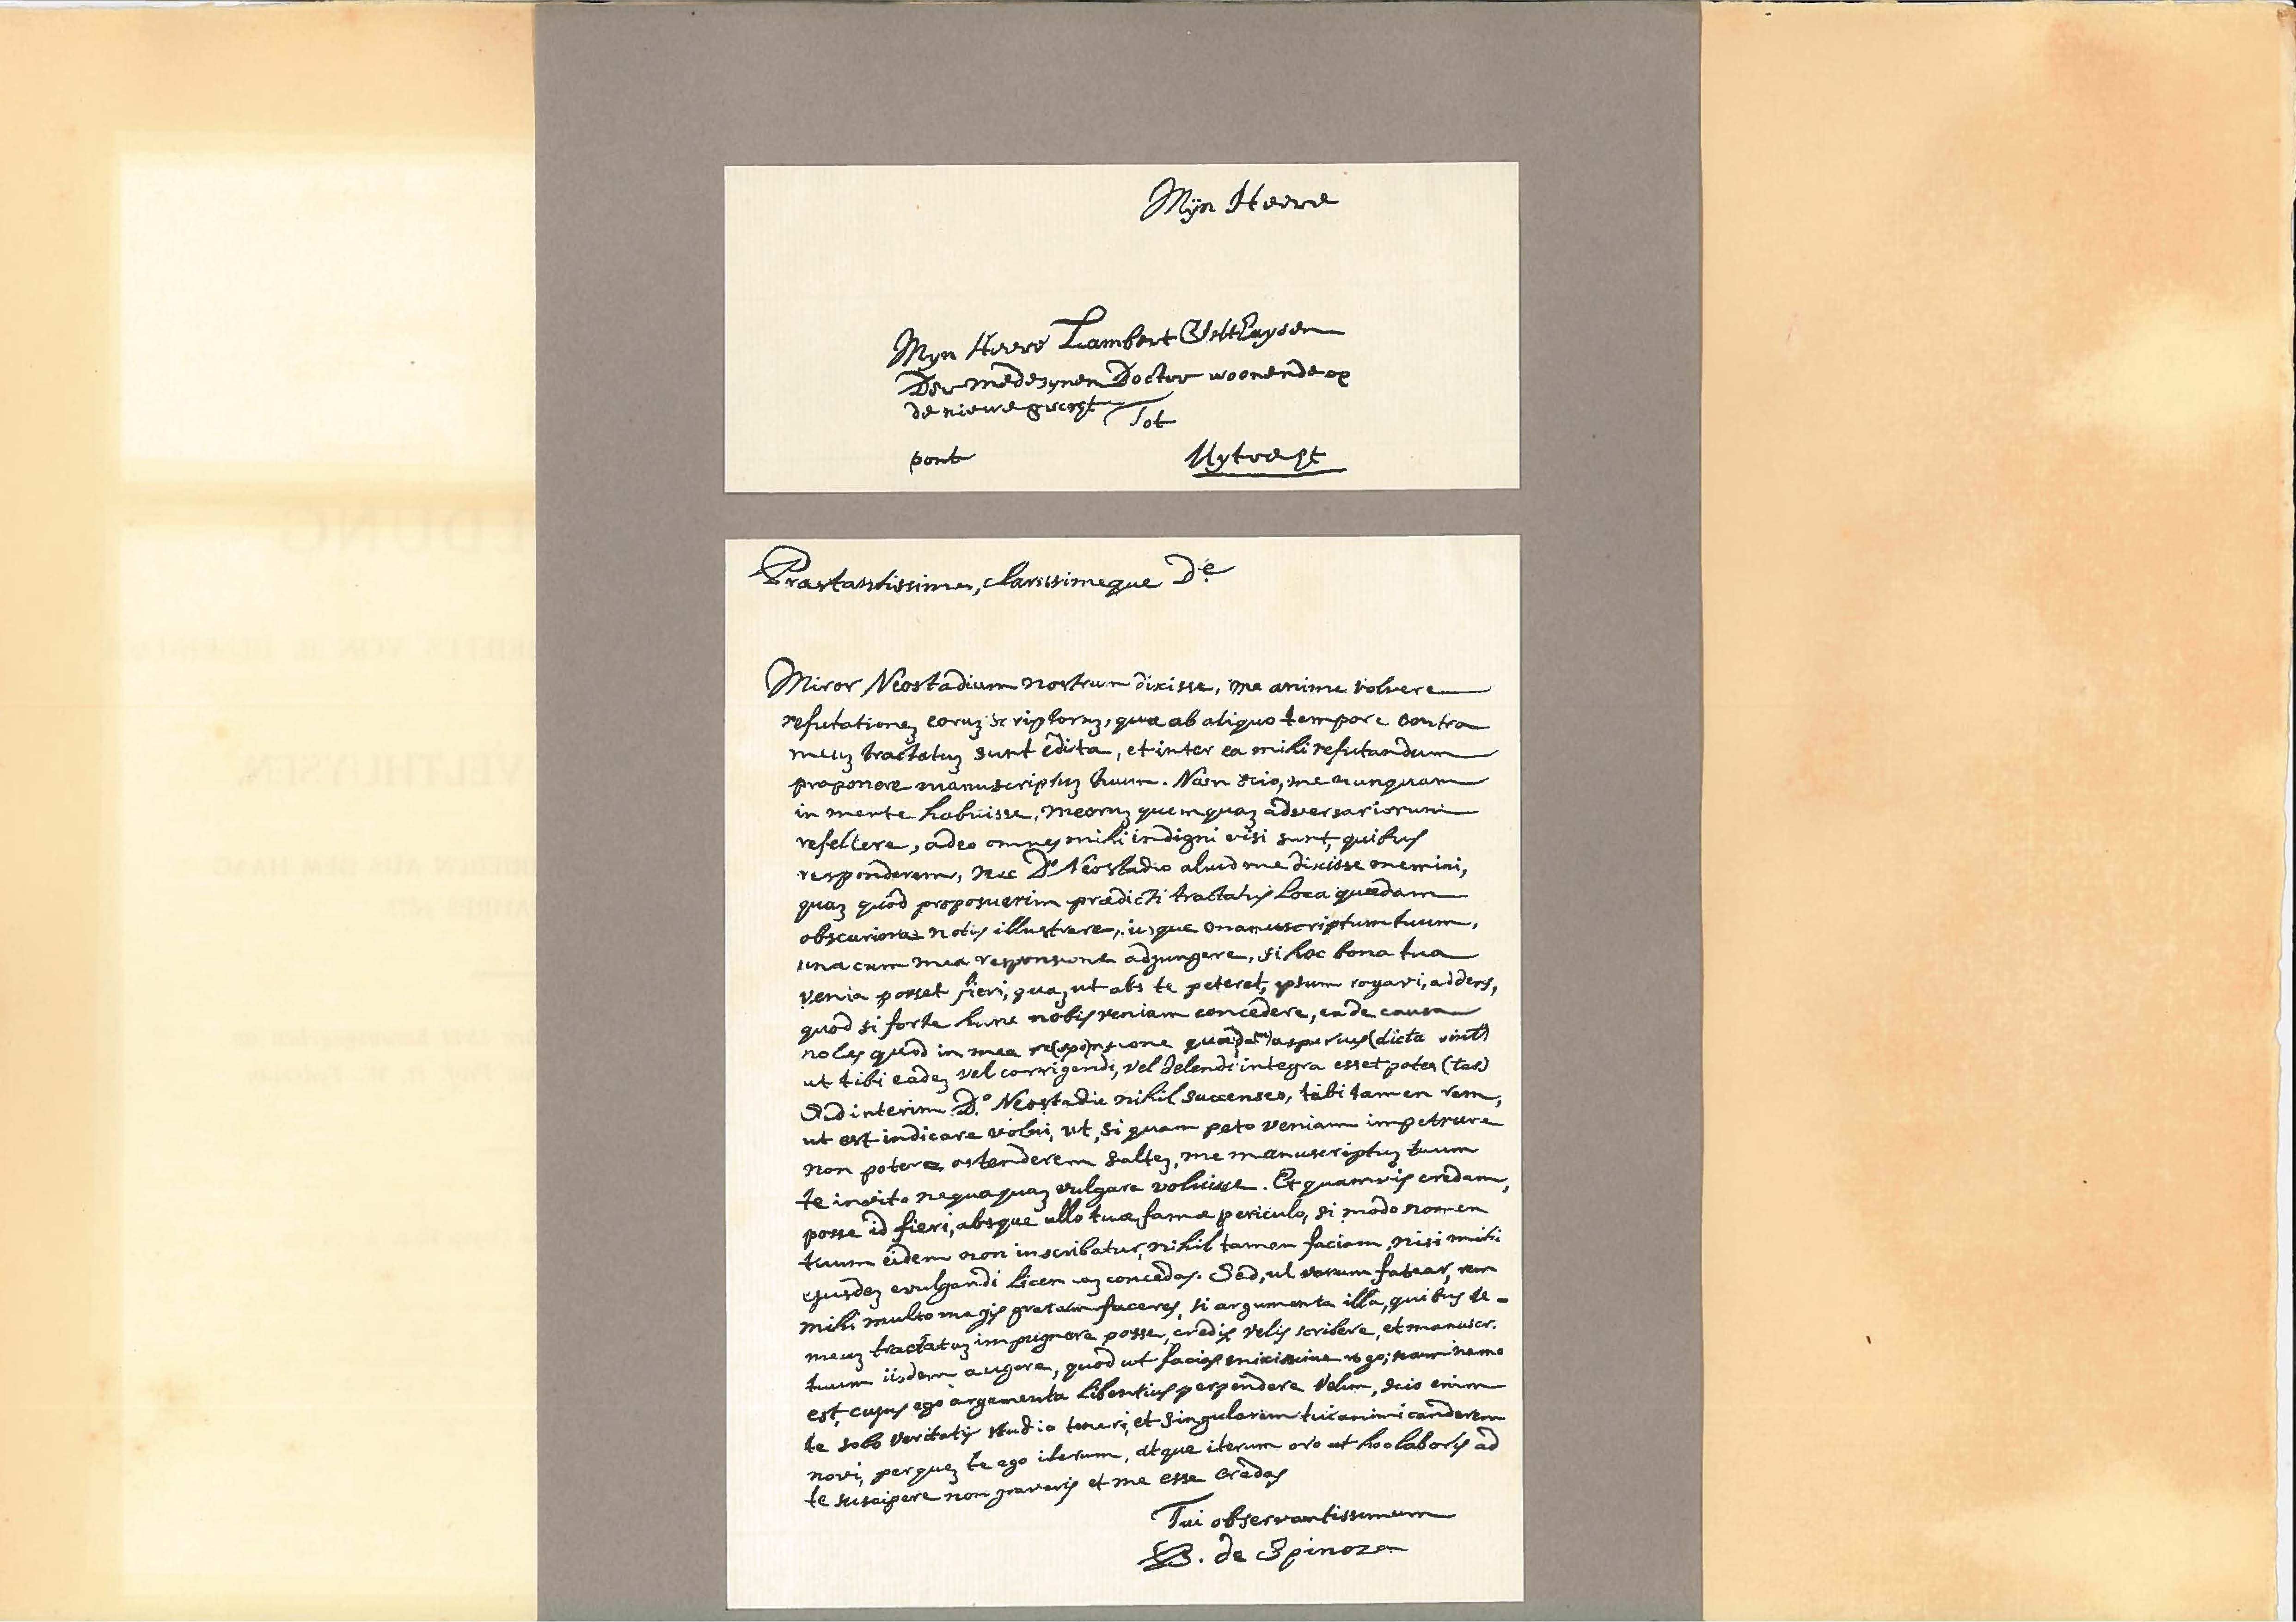 Mijn Heere
Mijn Heere Lambert Velthuysen
Der medesynen Doctor woonende op
de nieuwe gracht Tot
port
Uytrecht
Præstantissime, clarissimeque De
Miror Neostadium nostrum dixisse, me animo volvere
refutationeʒ eoruʒ scriptoruʒ, quæ ab aliquo tempore contra
meuʒ tractatuʒ sunt edita, et inter ea mihi refutandum
proponere manuscriptuʒ tuum. Nam scio, me nunquam
in mente habuisse, meoruʒ quemquaʒ adversariorum
refellere, adeo omnes mihi indigni visi sunt, quibus
responderem, nec Do Neostadio aliud me dixisse memini,
quaʒ quod proposuerim prædicti tractatus loca quædam
obscuriora notis illustrare, iisque manuscriptum tuum,
una cum mea responsione adjungere, si hoc bona tua
venia posset fieri, quaʒ ut abs te peteret, ipsum rogavi, addens,
quod si forte hanc nobis veniam concedere, ea de causa
noles quod in mea re(spo)nsione quæda(m) asperius (dicta sint)
ut tibi eadeʒ vel corrigendi, vel delendi integra esset potes(tas)
Sed interim Do Neostadio nihil succenseo, tibi tamen rem,
ut est indicare volui, ut, si quam peto veniam impetrare
non potero ostenderem salteʒ, me manuscriptuʒ tuum
te invito nequaquaʒ vulgare voluisse. Et quamvis credam,
posse id fieri, absque ullo tuæ famæ periculo, si modo nomen
tuum eidem non inscribatur, nihil tamen faciam, nisi mihi
ejusdeʒ evulgandi licen iaʒ concedas. Sed, ut verum fatear, rem
mihi multo magis gratam faceres, si argumenta illa, quibus te-
meuʒ tractatuʒ impugnare posse, credis velis scribere, et manuscr.
tuum iisdem augere, quod ut facias enixissime rogo; nam nemo
est, cujus ego argumenta libentius perpendere velim, scio enim
te solo veritatis studio teneri, et singularem tui animi candorem
novi, per queʒ te ego iterum, atque iterum oro ut hoc laboris ad
te suscipere non graveris et me esse credas
Tui observantissimum
B. de Spinoza